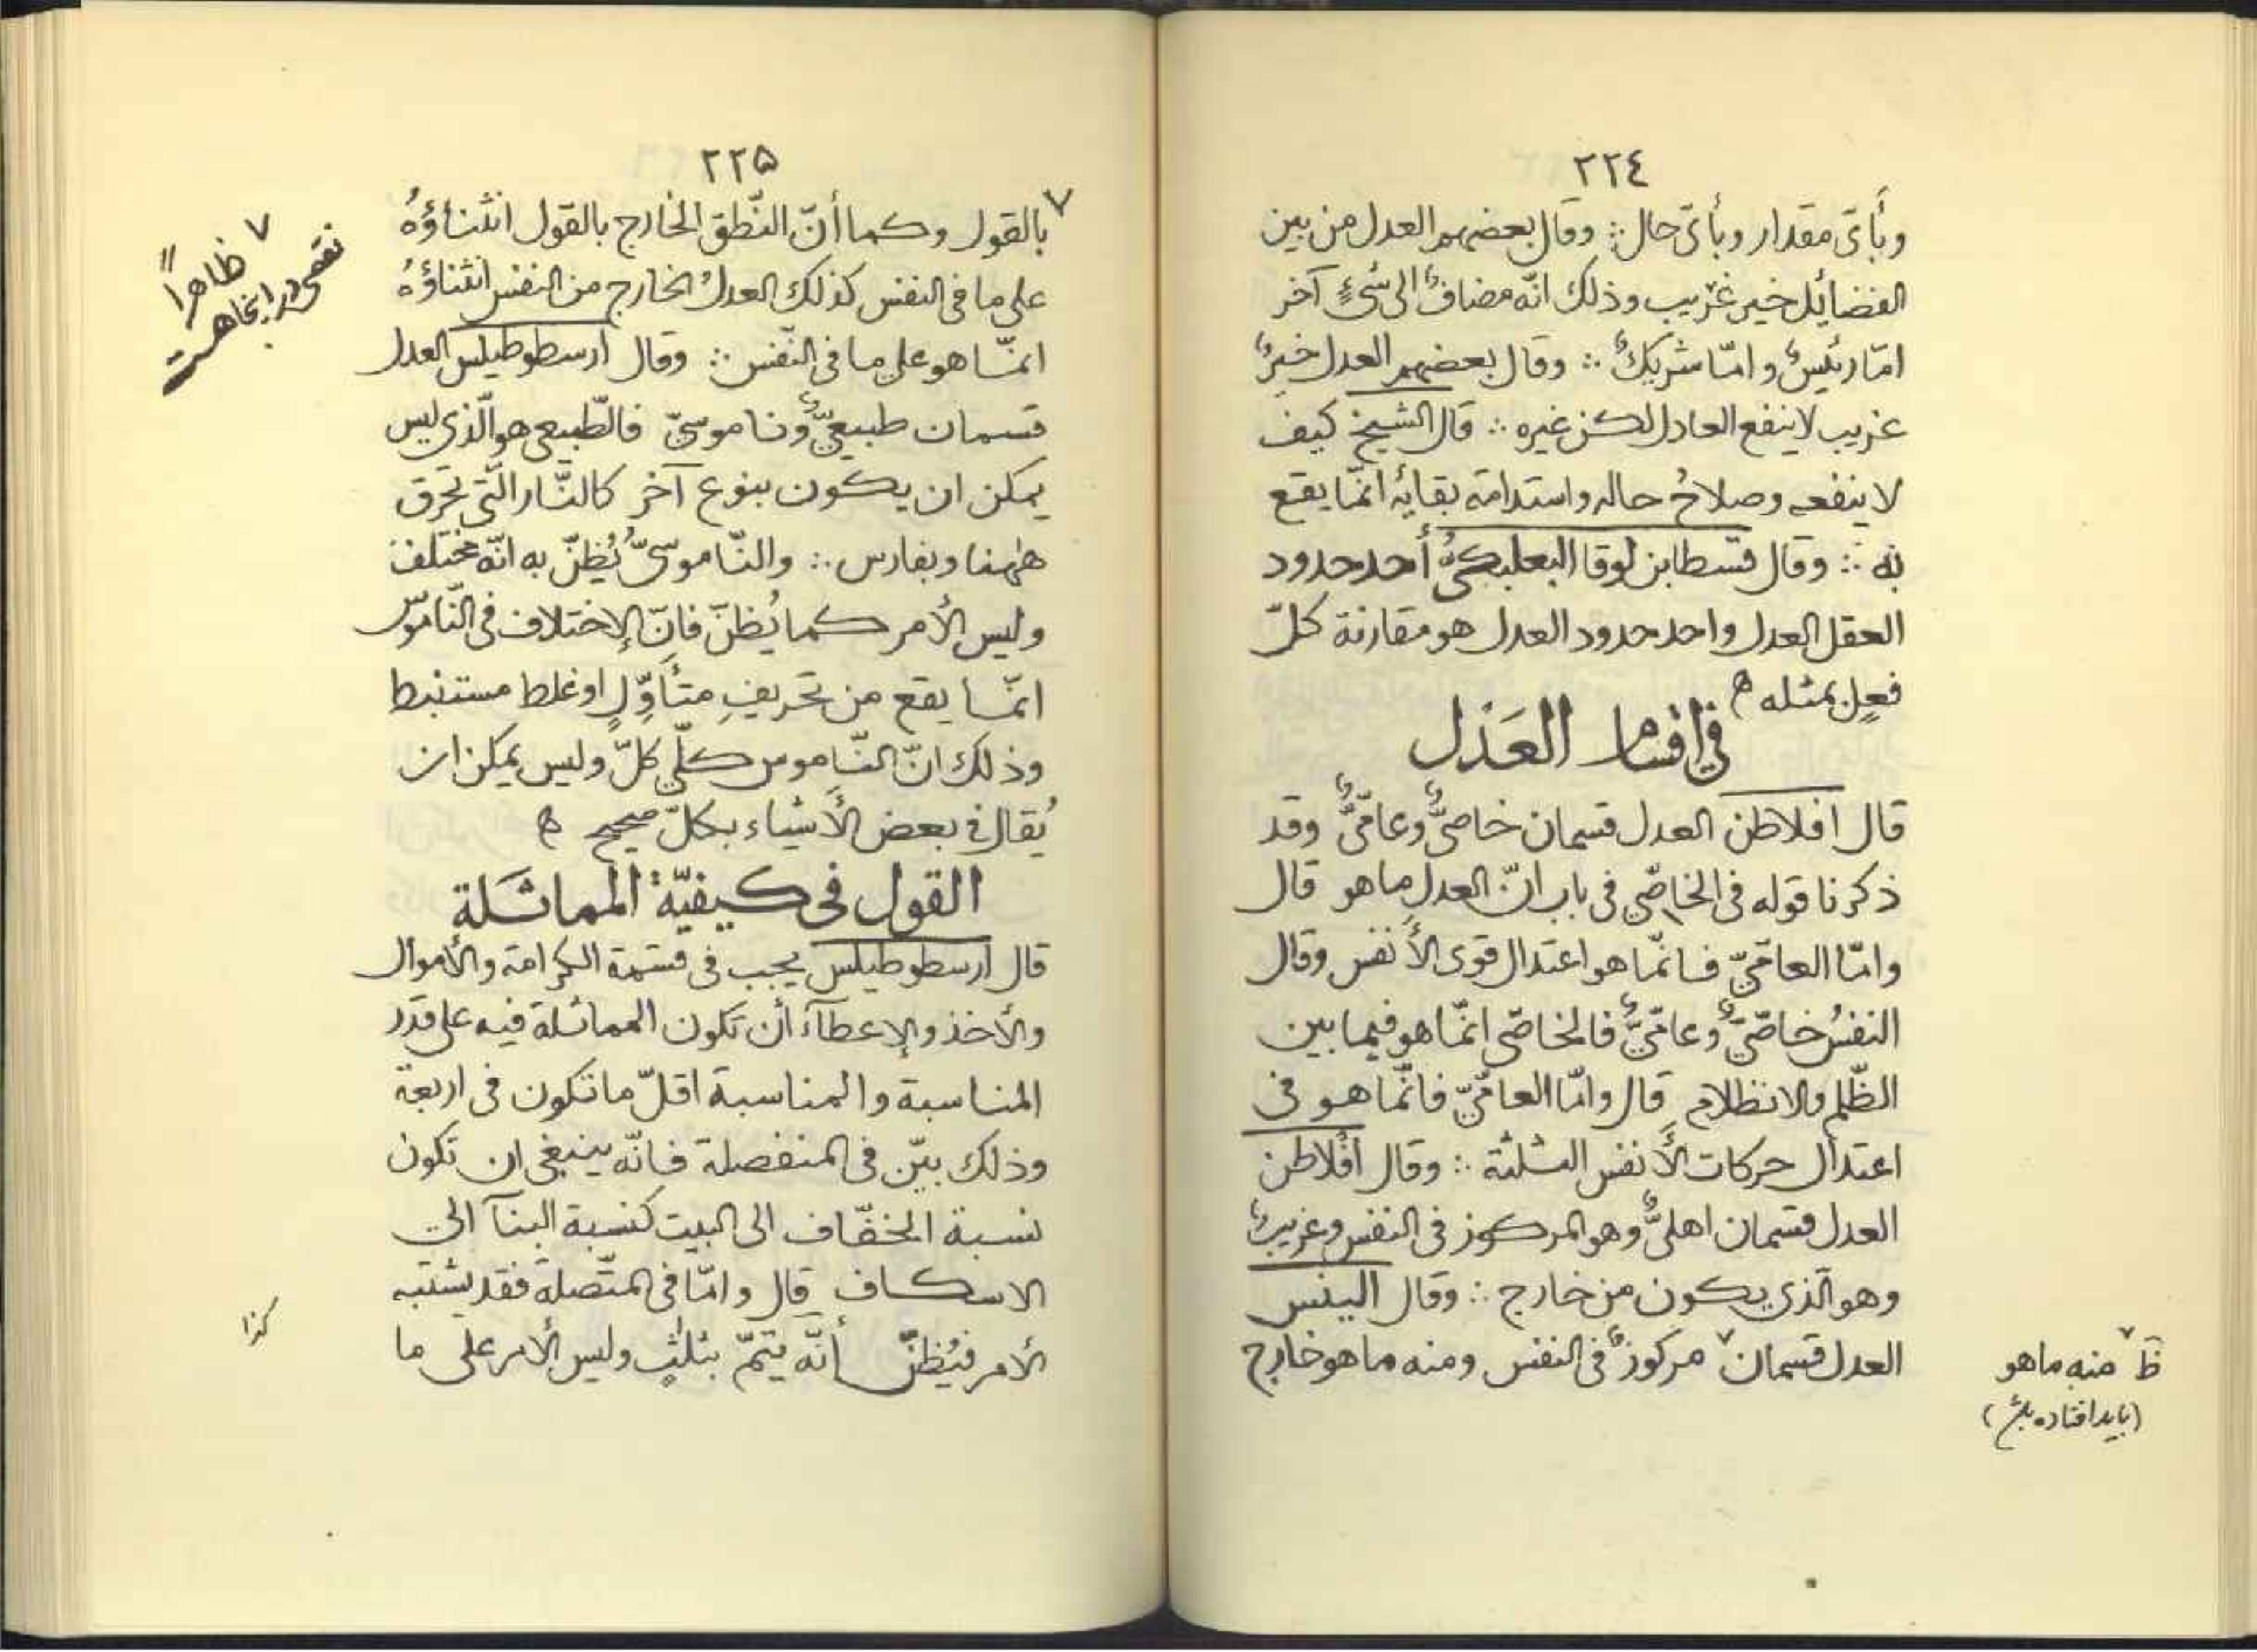 ٢٢٤
وبأىّ مقدار وبأىّ حال ∴ وقال بعضهم العدل من بين
الفضائل خير غريب وذلك انّه مضافٌ الى شىءٍ آخر
امّا رئيسٌ و امّا شريكٌ ∴ وقال بعضهم العدل خيرٌ
غريب لا ينفع العادل لكن غيره ∴ قال الشيخ كيف
لا ينفعه وصلاحُ حاله واستدامة بقائه انّما يقع
به ∴ وقال قسطا بن لوقا البعلبكىُّ أحد حدود
العقل العدل واحد حدود العدل هو مقارنة كلّ
فعلٍ بمثله ه
فى اقسام العَدْل
قال افلاطن العدل قسمان خاصىٌّ وعامّىٌّ وقد
ذكرنا قوله فى الخاصّى فى باب انّ العدل ما هو قال
وامّا العامّىّ فانّما هو اعتدال قوى الأنفس وقال
النفسُ خاصّىٌّ وعامّىٌّ فالخاصّى انّما هو فيما بين
الظّلم والانظلام قال وامّا العامّىّ فانّما هو فى
اعتدال حركات الأنفس الثلثة ∴ وقال أفلاطن
العدل قسمان اهلىٌّ وهو المركوز فى النفس وغريبٌ
وهو الّذى يكون من خارج ∴ وقال الينس
العدل قسمان ٧ مركوزٌ فى النفس ومنه ما هو خارج
٧
ظ منه ما هو
(بايد افتاده باشد)
٢٢۵
٧ بالقول وكما أنّ النّطق الخارج بالقول انثناؤهُ
على ما فى النفس كذلك العدلُ الخارج من النفس انثناؤهُ
انمّا هو على ما فى النّفس ∴ وقال ارسطوطيلس العدل
قسمان طبيعىٌّ وناموسىّ فالطّبيعى هو الّذى ليس
يمكن ان يكون بنوع آخر كالنّار الّتى تحرق
ههنا وبفارس ∴ والنّاموسىُّ يُظنّ به انّه مختلف
وليس الأمر كما يُظنّ فانّ الإختلاف فى النّاموس
انمّا يقع من تحريفِ متأوّلٍ او غلط مستنبط
وذلك انّ النّاموس كلّىٌ كلّ وليس يمكن ان
يُقال فى بعض الأشياء بكلّ صحيح ه
القول فى كيفيّة المماثَلة
قال ارسطوطيلس يجب فى قسمة الكرامة والأموال
والأخذ والإعطآء أن تكون المماثلة فيه على قدر
المناسبة والمناسبة اقلّ ما تكون فى اربعة
وذلك بيّن فى المنفصلة فانّه ينبغى ان تكون
نسبة الخفّاف الى البيت كنسبة البنآ الى
الاسكاف قال وامّا فى المتّصلة فقد يشتبه
الأمر فيُظنّ أنّه يتمّ بثلثٍ وليس الأمر على ما
٧ ظاهراً
نقصى در اينجاهست
كذا